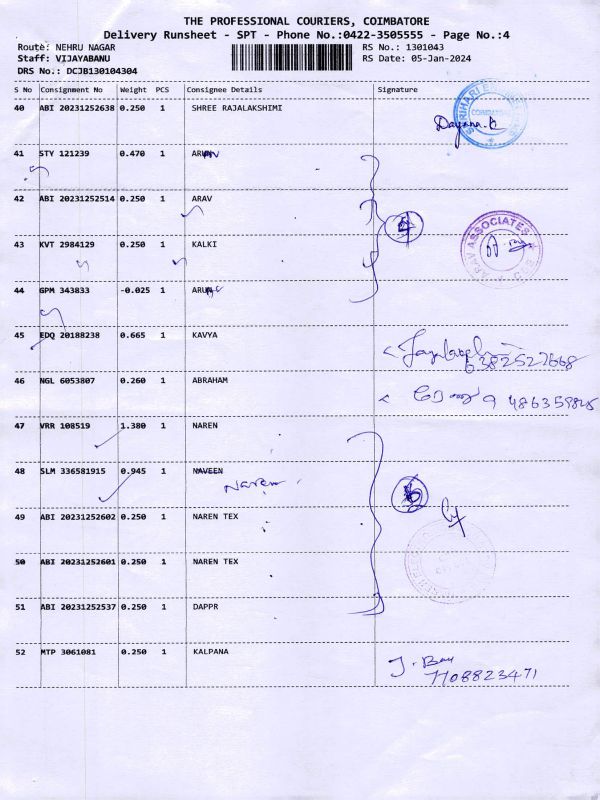 THE PROFESSIONAL COURIERS, COIMBATORE
Delivery Runsheet - SPT - Phone No.:0422-3505555 - Page No.:4
Route: NEHRU NAGAR RS No.: 1301043
Staff: VIJAYABANU RS Date: 05-Jan-2024
DRS No.: DCJB130104304
S No Consignment No Weight PCS Consignee Details Signature
40 ABI 20231252638 0.250 1 SHREE RAJALAKSHIMI
41 STY 121239 0.470 1
42 ABI 20231252514 0.250 1 ARAV
ASSOCIATES
43 KVT 2984129 0.250 1 KALKI
44 GPM 343833 -0.025 1
45 EDQ 20188238 0.665 1 KAVYA
6382527668
46 NGL 6053807 0.260 1 ABRAHAM
47 VRR 108519 1.380 1 NAREN
48 SLM 336581915 0.945 1 NAVEEN
Naren
49 ABI 20231252602 0.250 1 NAREN TEX
50 ABI 20231252601 0.250 1 NAREN TEX
51 ABI 20231252537 0.250 1 DAPPR
52 MTP 3061081 0.250 1 KALPANA
7708823471